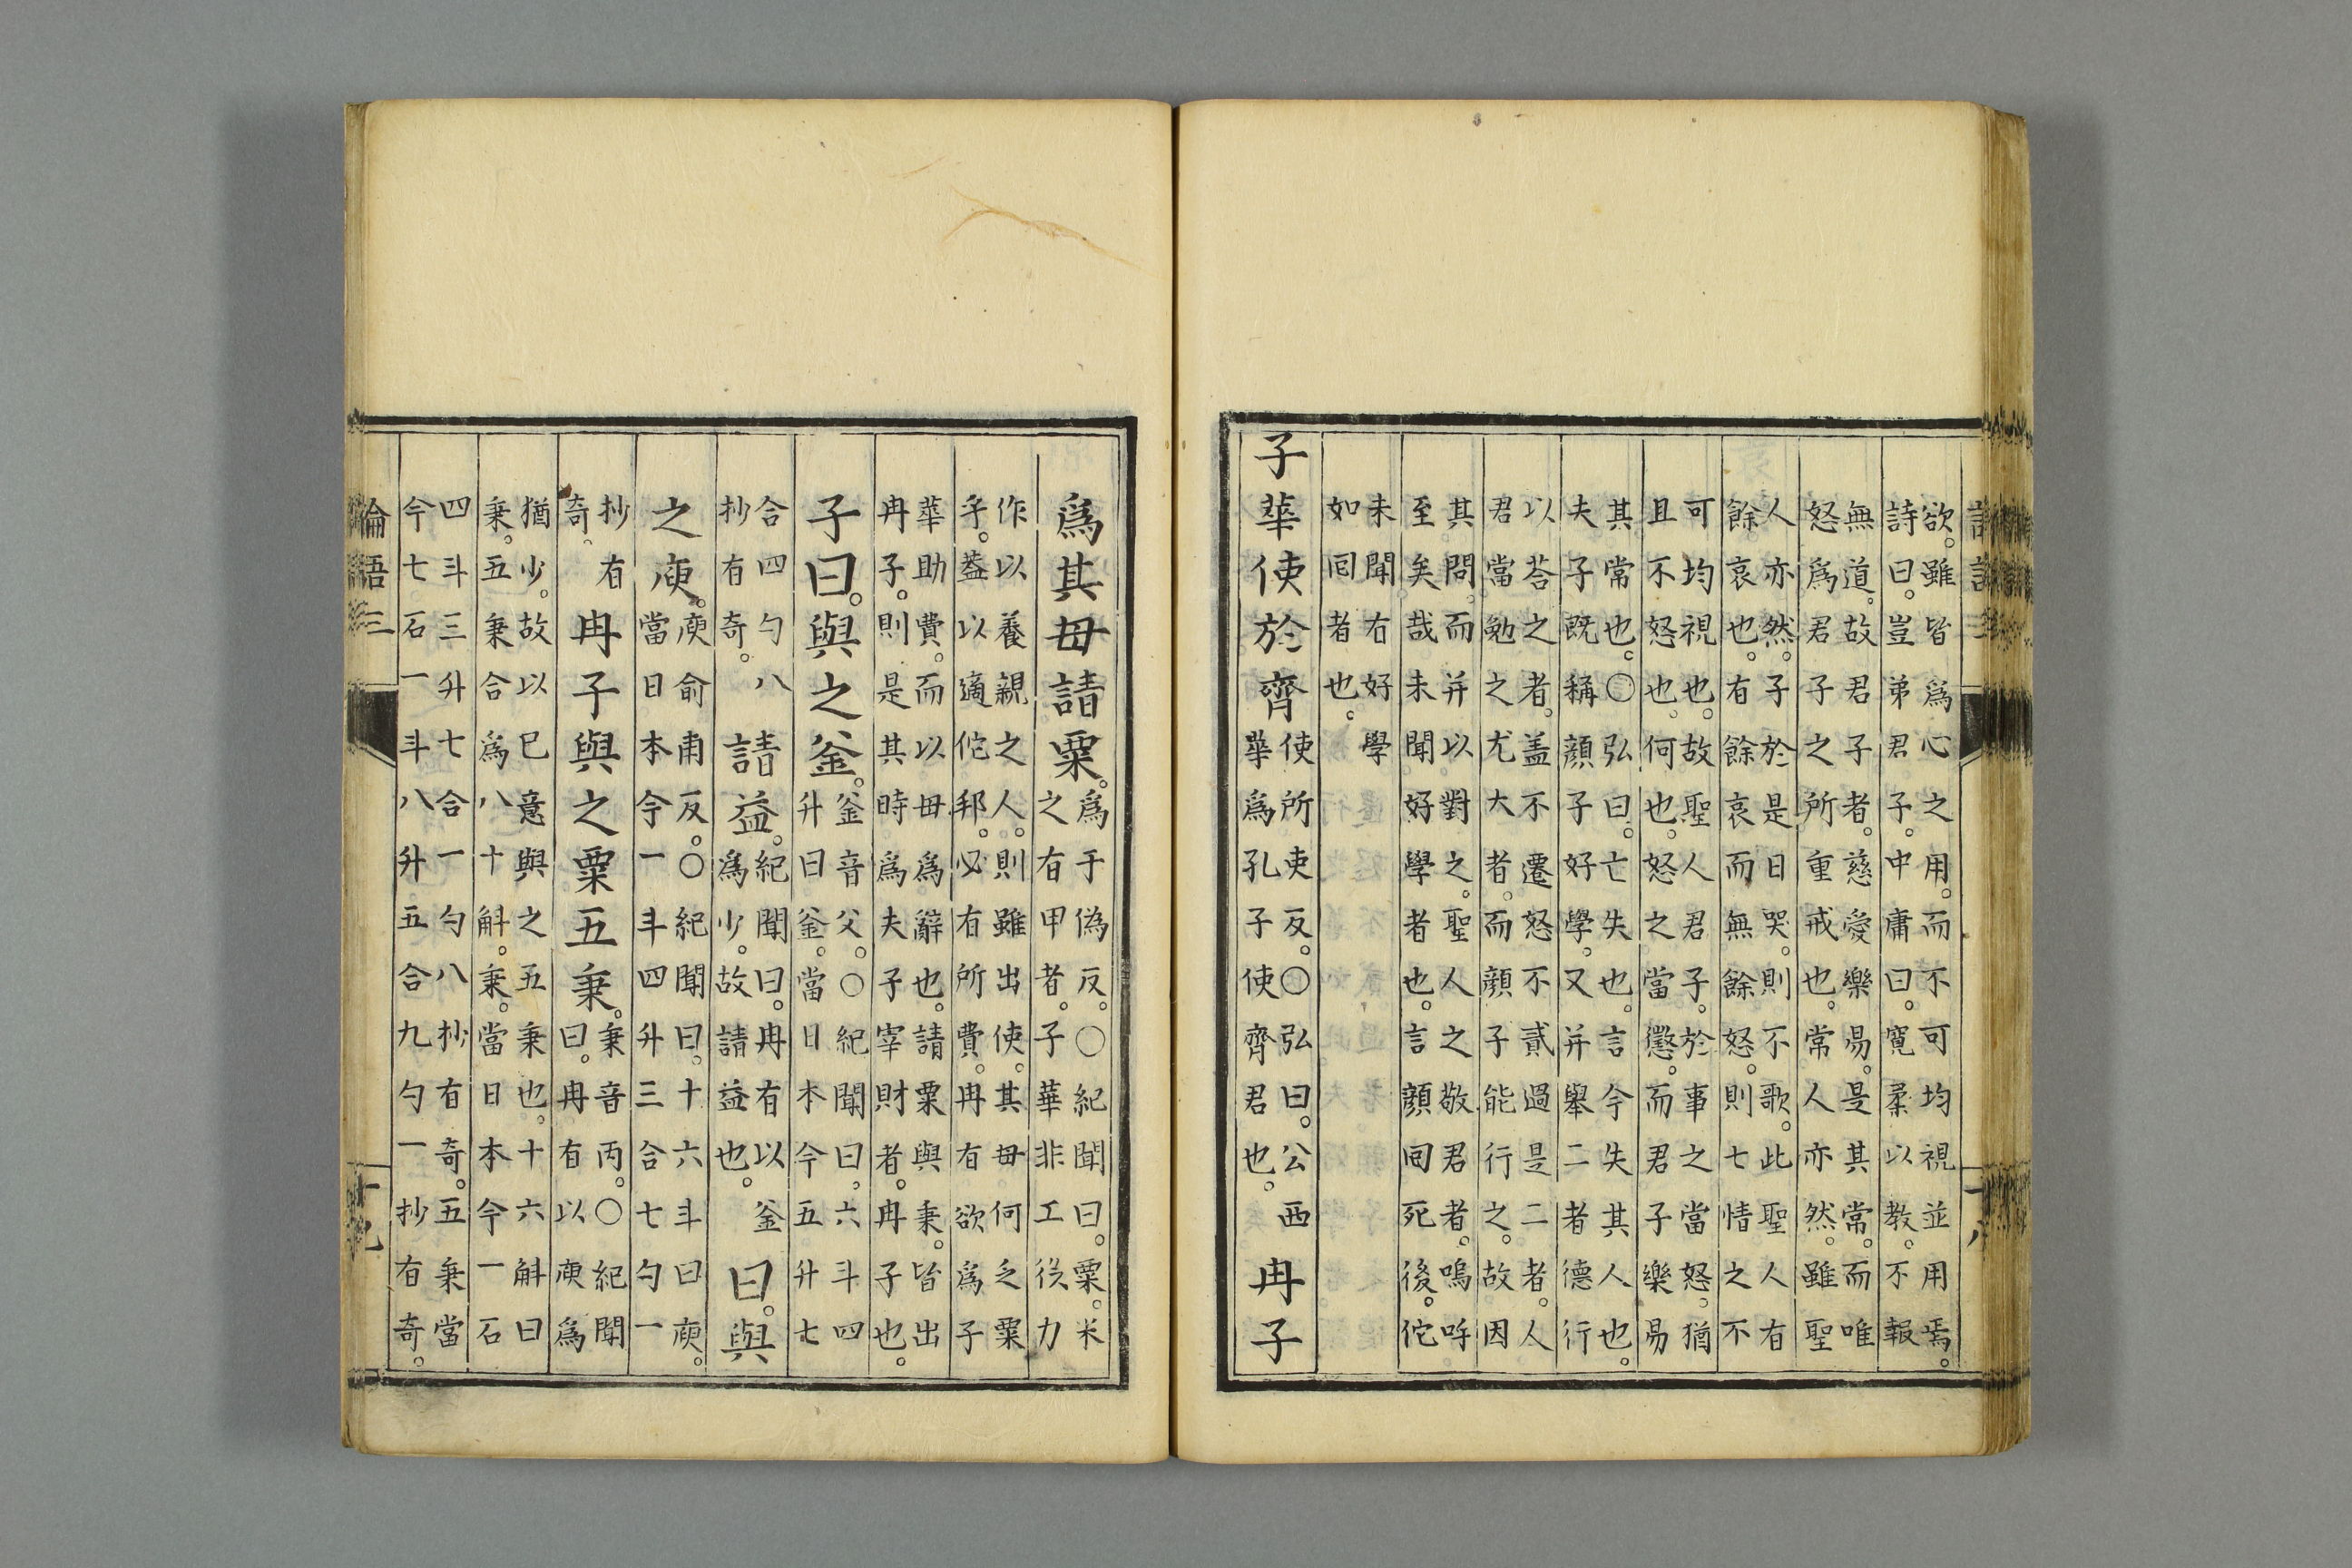 欲。雖皆爲心之用。而不可均視並用焉。
詩曰。豈弟君子。中庸曰。寬柔以教。不報
無道。故君子者。慈愛樂易。是其常。而唯
怒爲君子之所重戒也。常人亦然。雖聖
人亦然。子於是日哭。則不歌。此聖人有
餘哀也。有餘哀而無餘怒。則七情之不
可均視也。故聖人君子。於事之當怒。猶
且不怒也。何也。怒之當懲。而君子樂易
其常也。〇弘曰。亡失也。言今失其人也。
夫子既稱顏子好學。又并舉二者德行
以荅之者。盖不遷怒不貳過是二者。人
君當勉之尤大者。而顔子能行之。故因
其問。而并以對之。聖人之敬君者。嗚呼
至矣哉未聞好學者也。言顔回死後。佗
未聞有好學
如回者也。
子華使於齊使所吏反。〇弘曰。公西
華爲孔子使齊君也。冉子
爲其母請粟。爲于偽反。〇紀聞曰。粟。米
之有甲者。子華非工役力
作以養親之人。則雖出使。其母何乏粟
乎。蓋以適佗邦。必有所費。冉有欲爲子
華助費。而以母爲辭也。請粟與秉。皆出
冉子。則是其時爲夫子宰財者。冉子也。
子曰。與之釜。釜音父。〇紀聞曰。六斗四
升曰釜。當日本今五升七
合四勺八
抄有奇。請益。紀聞曰。冉有以釜
爲少。故請益也。曰。與
之庾。庾俞甫反。〇紀聞曰。十六斗曰庾。
當日本今一斗四升三合七勺一
抄有
奇。冉子與之粟五秉。秉音丙。〇紀聞
曰。冉有以庾爲
猶少。故以已意與之五秉也。十六斛曰
秉。五秉合爲八十斛。秉。當日本今一石
四斗三升七合一勺八抄有奇。五秉當
今七石一斗八升五合九勺一抄有奇。
論語三
十九